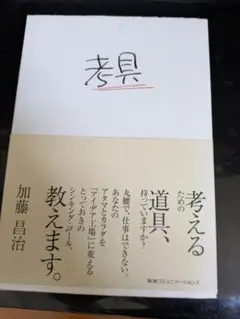 考具
考える
ための
道具、
持っていますか?
丸腰で、仕事はできない。
あなたの
アタマとカラダを
『アイデア工場』に変える
とっておきの
シンキングツール、
教えます。
加藤昌治
阪急コミュニケーションズ